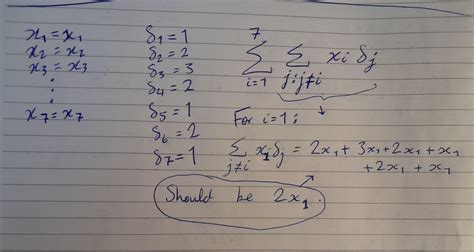 x₁ = x₁
x₂ = x₂
x₃ = x₃
⋮
x₇ = x₇
δ₁ = 1
δ₂ = 2
δ₃ = 3
δ₄ = 2
δ₅ = 1
δ₆ = 2
δ₇ = 1
7
∑ ∑ xᵢ δⱼ
i=1 j:j≠i
For i=1:
∑ x₁δⱼ = 2x₁ + 3x₁ + 2x₁ + x₁
j≠i
+2x₁ + x₁
Should be 2x₁.